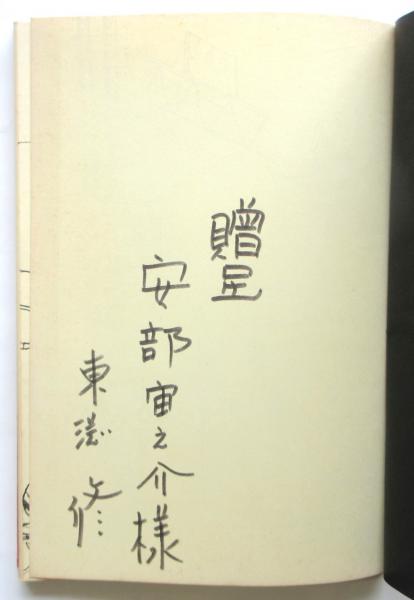 贈呈
安部宙之介様
東淵修